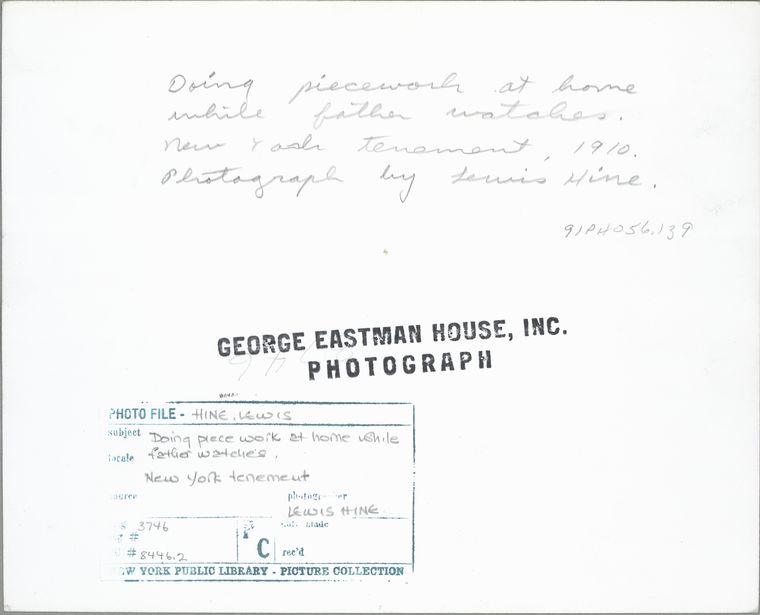 Doing piecework at home
while father watches.
New York tenement, 1910.
Photograph by Lewis Hine.
91PH056.139
GEORGE EASTMAN HOUSE, INC.
PHOTOGRAPH
PHOTO FILE - HINE, LEWIS
subject Doing piece work at home while
locale father watches.
New York tenement
photographer
LEWIS HINE
3746
# 
# 8446.2
C
made
rec'd
NEW YORK PUBLIC LIBRARY - PICTURE COLLECTION